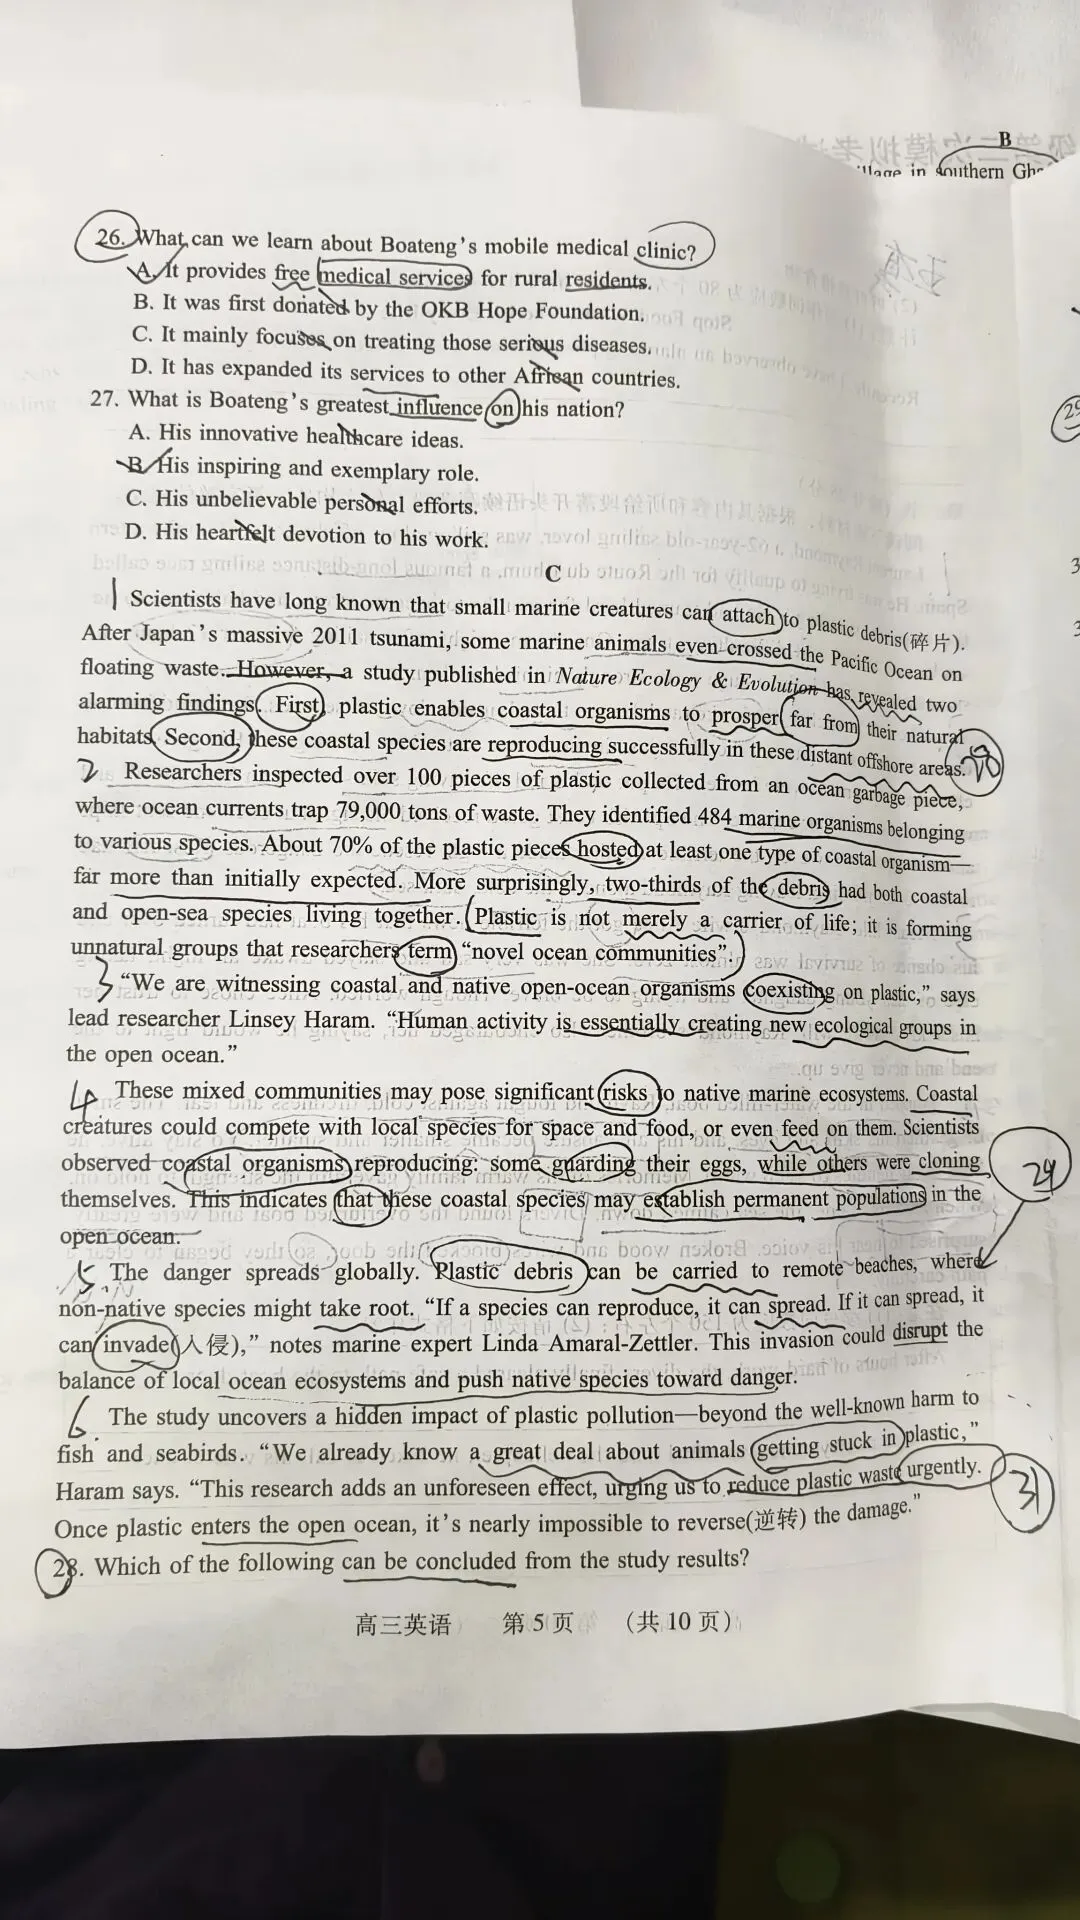 B
in southern
26. What can we learn about Boateng's mobile medical clinic?
A. It provides free medical services for rural residents.
B. It was first donated by the OKB Hope Foundation.
C. It mainly focuses on treating those serious diseases.
D. It has expanded its services to other African countries.
27. What is Boateng's greatest influence on his nation?
A. His innovative healthcare ideas.
B. His inspiring and exemplary role.
C. His unbelievable personal efforts.
D. His heartfelt devotion to his work.
C
1 Scientists have long known that small marine creatures can attach to plastic debris(碎片).
After Japan's massive 2011 tsunami, some marine animals even crossed the Pacific Ocean on
floating waste. However, a study published in Nature Ecology & Evolution has revealed two
alarming findings. First, plastic enables coastal organisms to prosper far from their natural
habitats. Second, these coastal species are reproducing successfully in these distant offshore areas. 28
2 Researchers inspected over 100 pieces of plastic collected from an ocean garbage piece,
where ocean currents trap 79,000 tons of waste. They identified 484 marine organisms belonging
to various species. About 70% of the plastic pieces hosted at least one type of coastal organism—
far more than initially expected. More surprisingly, two-thirds of the debris had both coastal
and open-sea species living together. Plastic is not merely a carrier of life; it is forming
unnatural groups that researchers term “novel ocean communities”.
3 “We are witnessing coastal and native open-ocean organisms coexisting on plastic,” says
lead researcher Linsey Haram. “Human activity is essentially creating new ecological groups in
the open ocean.”
4 These mixed communities may pose significant risks to native marine ecosystems. Coastal
creatures could compete with local species for space and food, or even feed on them. Scientists
observed coastal organisms reproducing: some guarding their eggs, while others were cloning
themselves. This indicates that these coastal species may establish permanent populations in the
open ocean.
5 The danger spreads globally. Plastic debris can be carried to remote beaches, where
non-native species might take root. “If a species can reproduce, it can spread. If it can spread, it
can invade(入侵),” notes marine expert Linda Amaral-Zettler. This invasion could disrupt the
balance of local ocean ecosystems and push native species toward danger.
6 The study uncovers a hidden impact of plastic pollution—beyond the well-known harm to
fish and seabirds. “We already know a great deal about animals getting stuck in plastic,”
Haram says. “This research adds an unforeseen effect, urging us to reduce plastic waste urgently. 31
Once plastic enters the open ocean, it's nearly impossible to reverse(逆转) the damage.”
28. Which of the following can be concluded from the study results?
高三英语 第 5 页 (共 10 页)